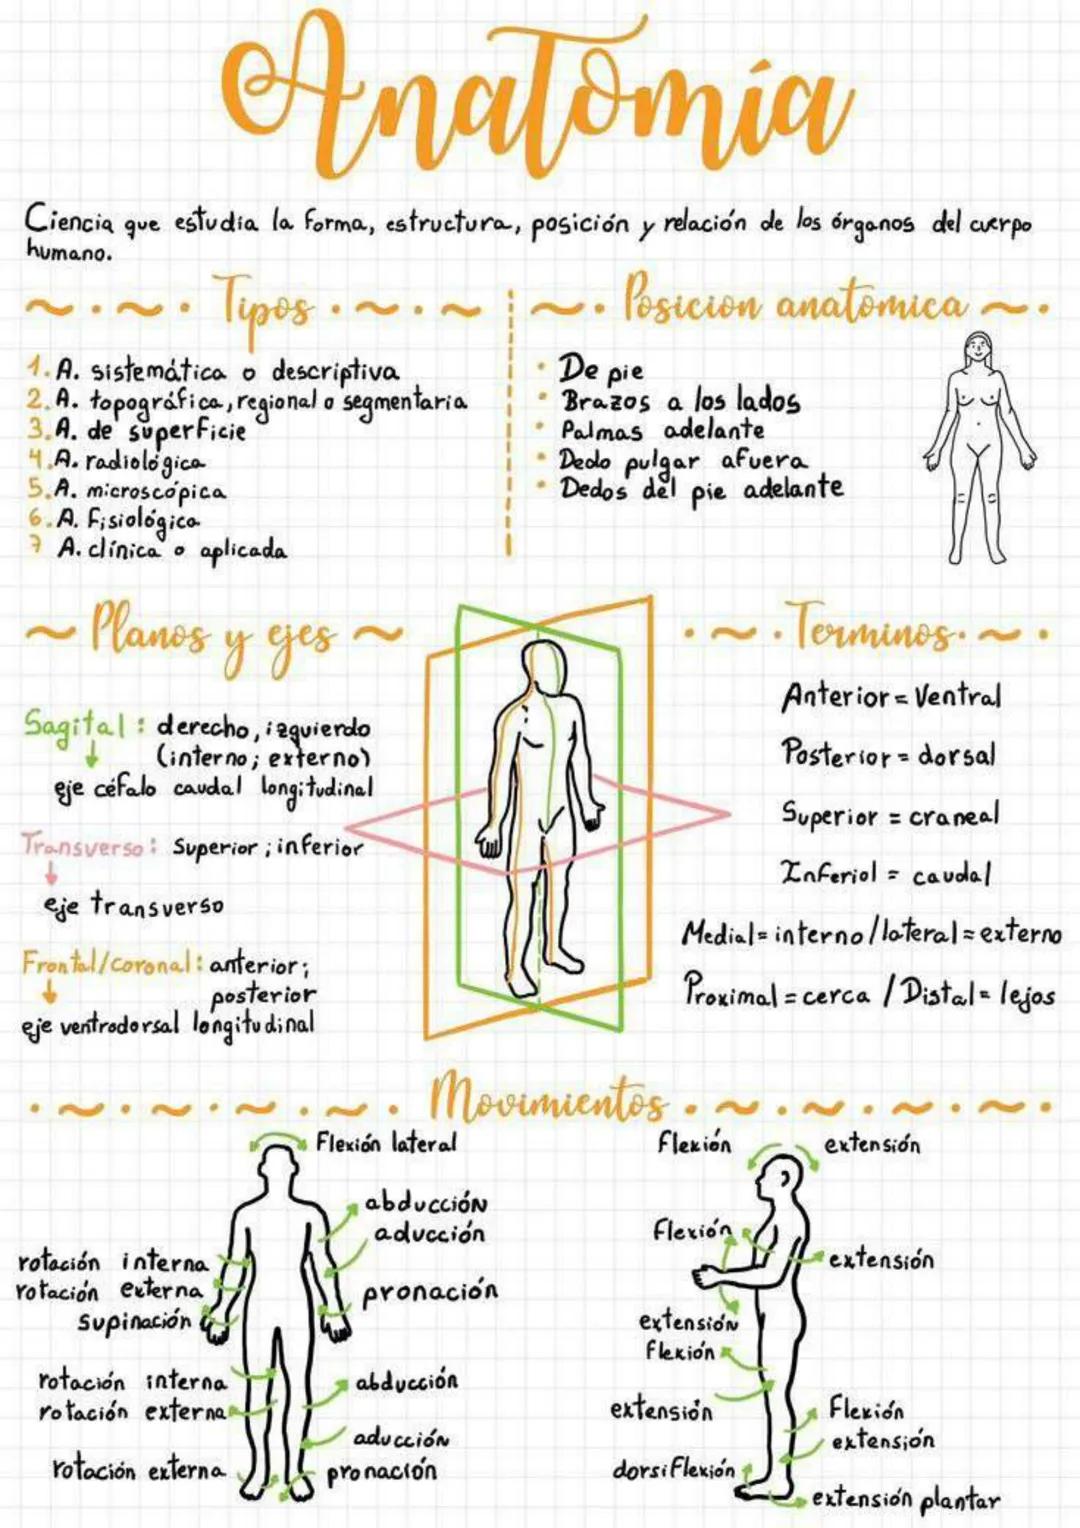 Anatomía
Ciencia que estudia la forma, estructura, posición y relación de los órganos del cuerpo
humano.
Tipos
1. A. sistemática o descriptiva
2. A. topográfica, regional o segmentaria
3. A. de superficie
4. A. radiológica
5. A. microscópica
6. A. fisiológica
7 A. clínica o aplicada
Posicion anatomica
De pie
Brazos a los lados
Palmas adelante
Dedo pulgar afuera
Dedos del pie adelante
Planos y ejes
Sagital: derecho, izquierdo
(interno; externo)
eje céfalo caudal longitudinal
Transverso: Superior; inferior
eje transverso
Frontal/coronal: anterior;
posterior
eje ventrodorsal longitudinal
Terminos
Anterior = Ventral
Posterior = dorsal
Superior = craneal
Inferiol = caudal
Medial = interno / lateral = externo
Proximal = cerca / Distal = lejos
Movimientos
Flexión lateral
abducción
aducción
rotación interna
rotación externa
supinación
pronación
rotación interna
rotación externa
abducción
aducción
rotación externa
pronación
Flexión
extensión
Flexión
extensión
extensión
flexión
extensión
Flexión
extensión
dorsiflexión
extensión plantar